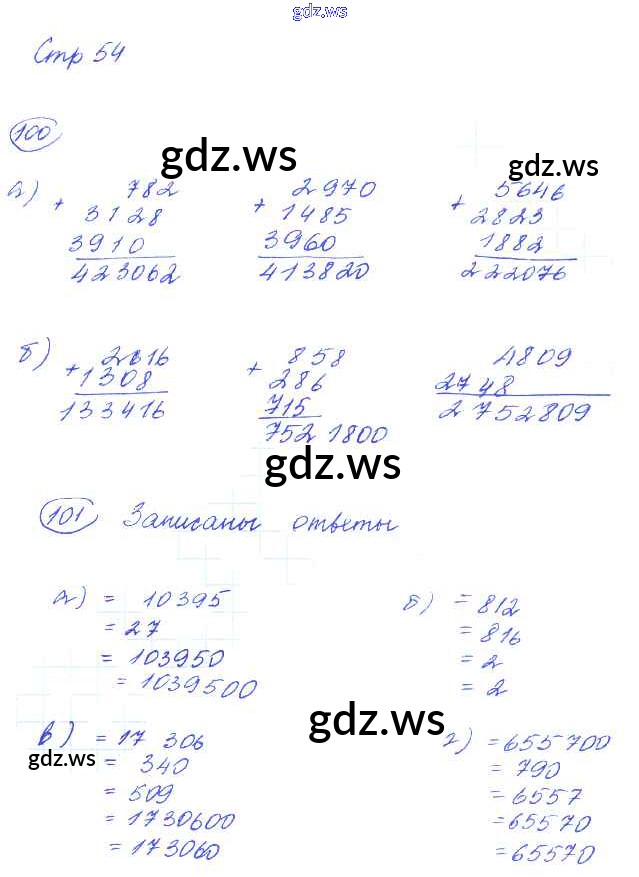 gdz.ws
Стр 54
100
gdz.ws
gdz.ws
а) + 782
3128
3910
423062
+ 2970
1485
3960
413820
+ 5646
2823
1882
222076
б) + 2616
1308
133416
+ 858
286
715
7521800
4809
2748
2752809
gdz.ws
101 Записаны ответы
а) = 10395
= 27
= 103950
= 1039500
б) = 812
= 816
= 2
= 2
gdz.ws
в) = 17 306
= 340
= 509
= 1730600
= 173060
gdz.ws
г) = 655700
= 790
= 6557
= 65570
= 65570